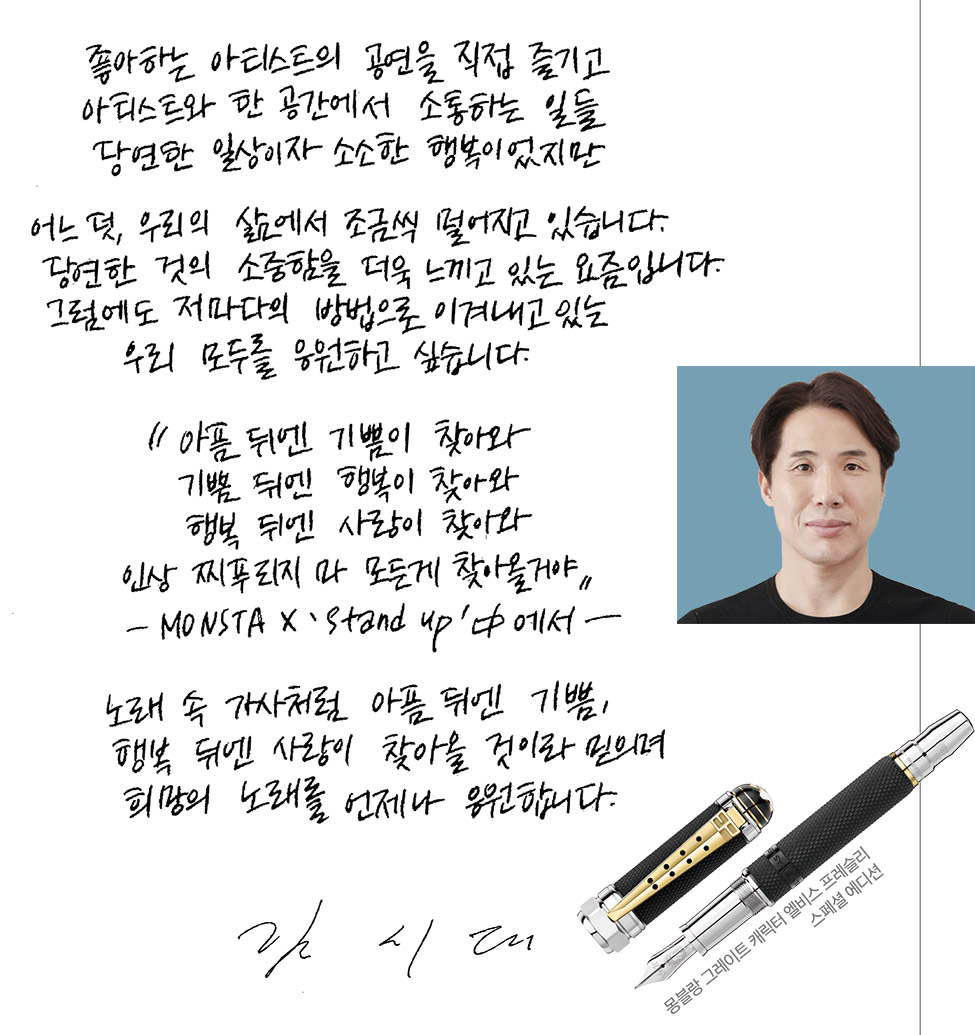 좋아하는 아티스트의 공연을 직접 즐기고
아티스트와 한 공간에서 소통하는 일들
당연한 일상이자 소소한 행복이었지만
어느 덧, 우리의 삶에서 조금씩 멀어지고 있습니다.
당연한 것의 소중함을 더욱 느끼고 있는 요즘입니다.
그럼에도 저마다의 방법으로 이겨내고 있는
우리 모두를 응원하고 싶습니다.
“아픔 뒤엔 기쁨이 찾아와
기쁨 뒤엔 행복이 찾아와
행복 뒤엔 사랑이 찾아와
인상 찌푸리지 마 모든게 찾아올거야„
- MONSTA X ‘Stand up’ 中에서 -
노래 속 가사처럼 아픔 뒤엔 기쁨,
행복 뒤엔 사랑이 찾아올 것이라 믿으며
희망의 노래를 언제나 응원합니다.
김시대
몽블랑 그레이트 캐릭터 엘비스 프레슬리
스페셜 에디션